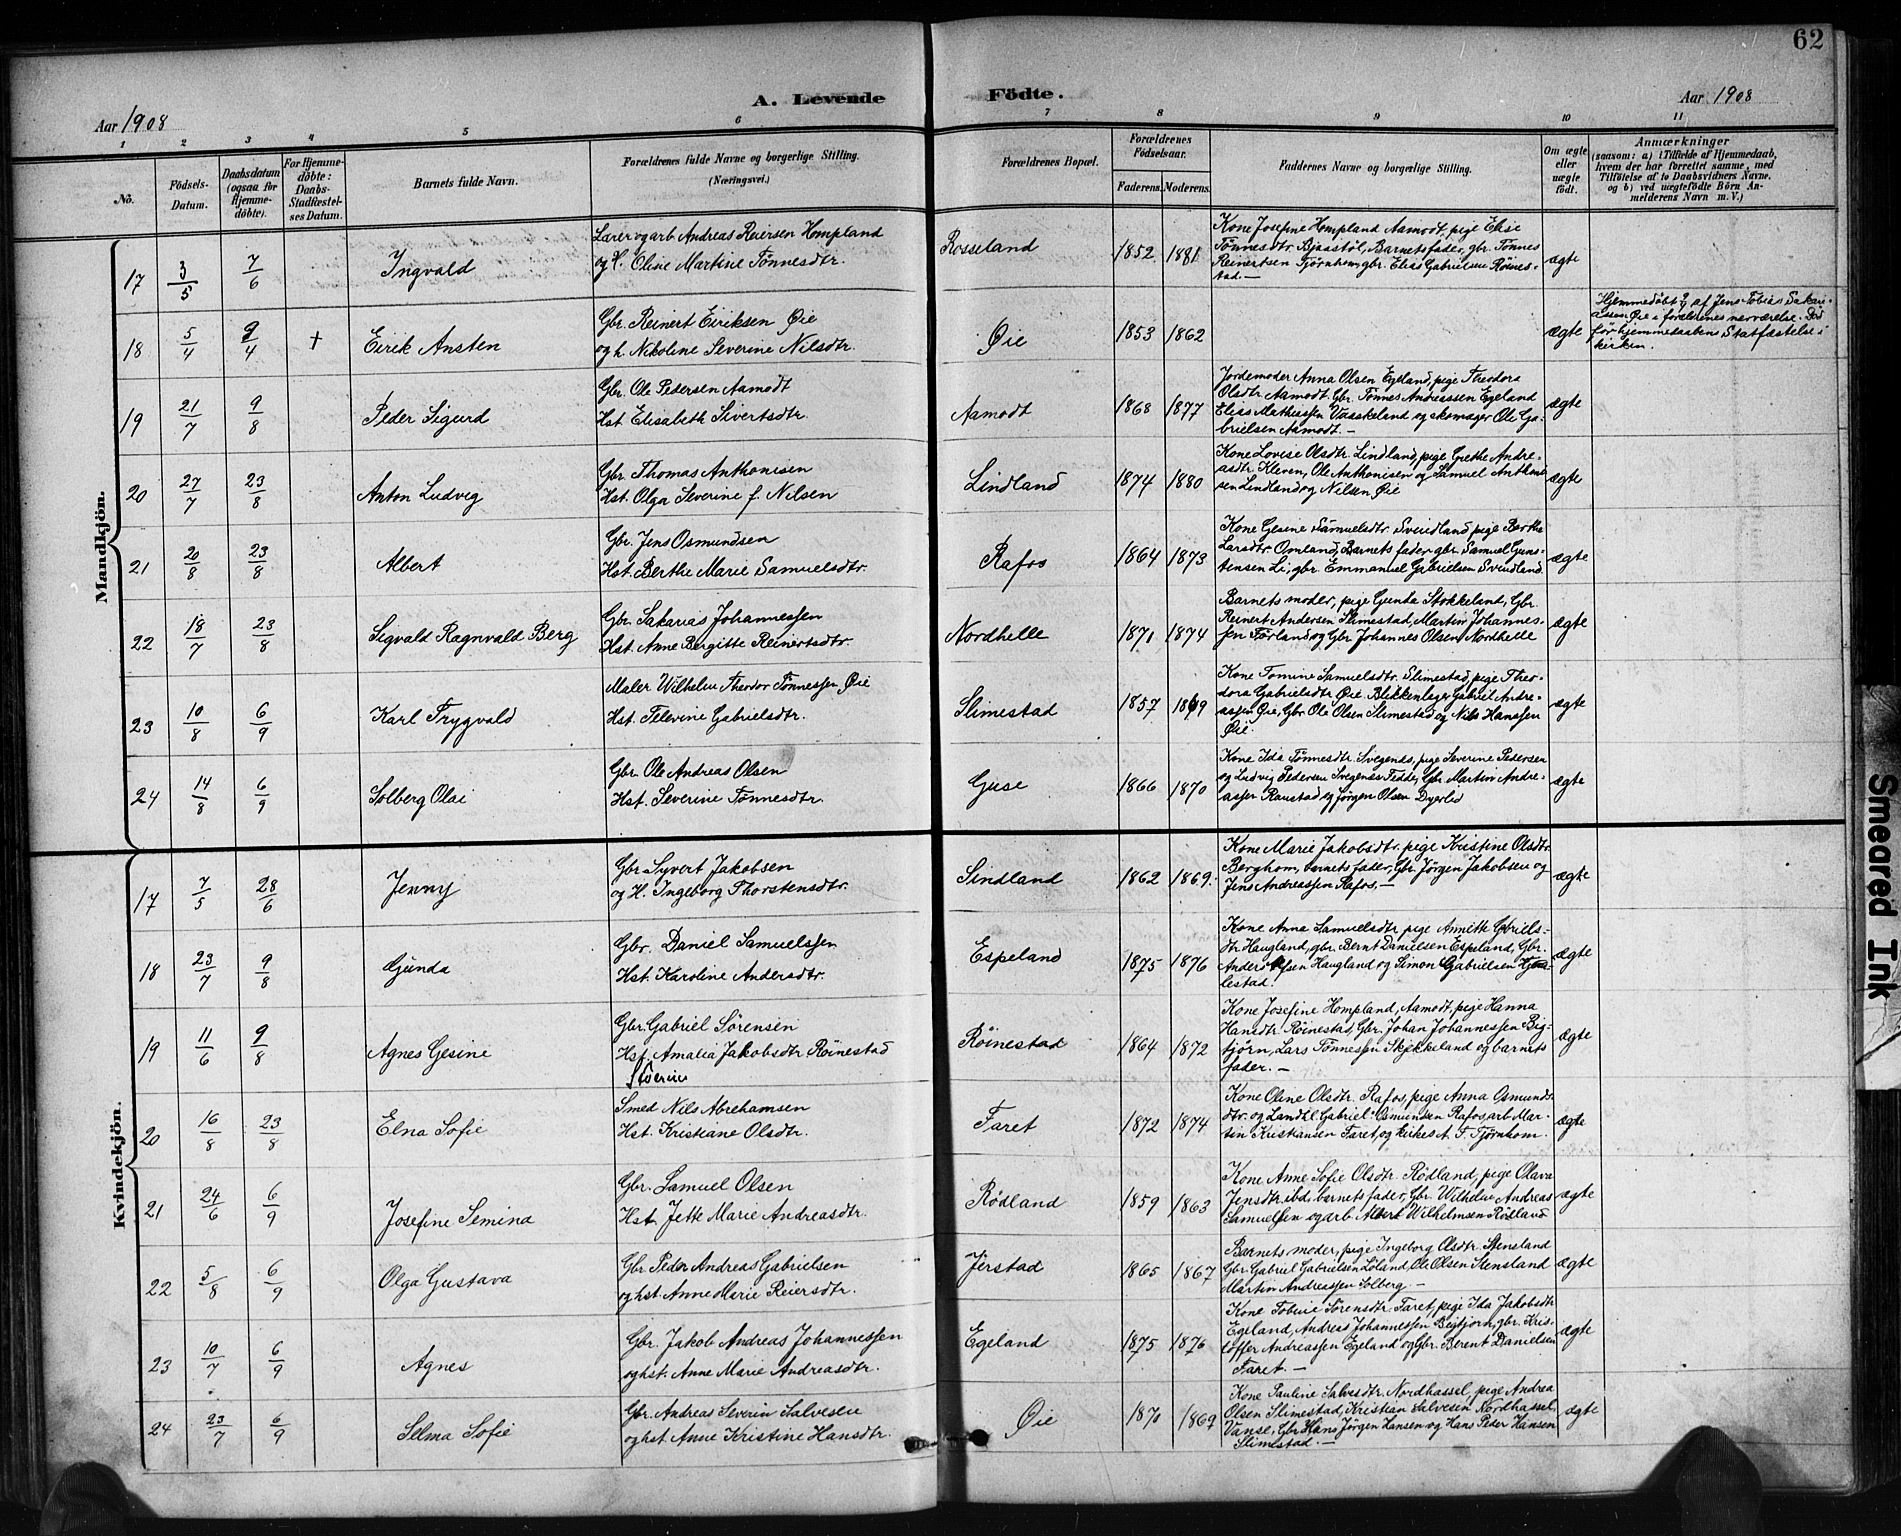 62
A. Levende Födte.
Aar 1908
Aar 1908
1 2 3 4 5 6 7 8 9 10 11
No.
Födsels-Datum.
Daabsdatum (ogsaa for Hjemme-döbte).
For Hjemme-döbte: Daabs-Stadfæstel-ses Datum.
Barnets fulde Navn.
Forældrenes fulde Navne og borgerlige Stilling. (Næringsvei.)
Forældrenes Bopæl.
Forældrenes Födselsaar.
Faderens. Moderens.
Faddernes Navne og borgerlige Stilling.
Om ægte eller uægte födt.
Anmærkninger
(saasom: a) i Tilfælde af Hjemmedaab,
hvem der har forrettet samme, med
Tilföielse af to Daabsvidners Navne,
og b) ved uægtefödte Börn An-
melderens Navn m. V.)
Mandkjön.
17 3/5 7/6 Ingvald
Lærer og arb Andreas Reiersen Hompland
og H. Oline Martine Tönnesdtr.
Rosseland 1852 1881
Kone Josefine Hompland Aamodt, pige Elise
Tönnesdtr. Bjaastöl, Barnets fader, gbr. Tönnes
Reinertsen Fjörnhom, gbr. Elias Gabrielsen Röines-
tad. —
ægte
18 5/4 9/4 + Eirik Ansten
Gbr. Reinert Eiriksen Øie
og h. Nikoline Severine Nilsdtr.
Øie 1853 1862
ægte
Hjemmedöbt af Jens Tobias Sakari-
assen Øie i forældrenes nærværelse. Död
för hjemmedaabens Statfæstelse i
kirken.
19 21/7 9/8 Peder Sigurd
Gbr. Ole Pedersen Aamodt
Hst. Elisabeth Sivertsdtr.
Aamodt 1868 1877
Jordemoder Anna Olsen Egeland, pige Theodora
Olsdtr Aamodt Gbr. Tönnes Andreassen Egeland
Elias Mathiassen Vaaskeland og skomager Ole Ga-
brielsen Aamodt. —
ægte
20 27/7 23/8 Anton Ludvig
Gbr. Thomas Anthonisen
Hst. Olga Severine f. Nilsen
Lindland 1874 1880
Kone Lovise Olsdtr. Lindland, pige Grethe Andre-
asdtr. Kleven, Ole Anthonisen og Samuel Anthoni-
sen Lindland og Nilsen Øie
ægte
21 20/8 23/8 Albert
Gbr. Jens Osmundsen
Hst. Berthe Marie Samuelsdtr.
Rafos 1864 1873
Kone Gesine Samuelsdtr. Svindland, pige Berthe
Larsdtr. Omland, Barnets fader, gbr. Samuel Guns-
tensen Li, gbr. Emmanuel Gabrielsen Svindland
ægte
22 18/7 23/8 Sigvald Ragnvald Berg
Gbr. Sakarias Johannessen
Hst. Anne Bergitte Reinertsdtr.
Nordhelle 1871 1874
Barnets moder, pige Gunda Stokkeland, Gbr.
Reinert Andersen Slimestad, Martin Johannes-
sen Förland og Gbr Johannes Olsen Nordhelle
ægte
23 10/8 6/9 Karl Trygvald
Maler Wilhelm Theodor Tönnessen Øie
Hst. Televine Gabrielsdtr.
Slimestad 1857 1869
Kone Tomine Samuelsdtr. Slimestad, pige Theo-
dora Gabrielsdtr Øie. Blikkenlager Gabriel Andre-
assen Øie, Gbr. Ole Olsen Slimestad og Nils Hanssen
Øie.
ægte
24 14/8 6/9 Solberg Olai
Gbr. Ole Andreas Olsen
Hst. Severine Tönnesdtr.
Guse 1866 1870
Kone Ida Tönnesdtr. Svegenes, pige Severine Pedersen
og Ludvig Pedersen Svegenes Fedde, Gbr. Martin Andre-
assen Raustad og Jörgen Olsen Dyerlid
ægte
Kvindekjön.
17 7/5 28/6 Jenny
Gbr Syvert Jakobsen
og H. Ingeborg Thorstensdtr.
Sindland 1862 1869.
Kone Marie Jakobsdtr. pige Kristine Olsdtr.
Berghom, barnets fader, Gbr. Jörgen Jakobsen og
Jens Andreassen Rafos. —
ægte
18 23/7 9/8 Gunda
Gbr. Daniel Samuelssen
Hst. Karoline Andersdtr.
Espeland 1875 1876
Kone Anne Samuelsdtr. pige Annette Gabriels-
dtr Haugland, gbr. Bernt Danielsen Espeland, Gbr.
Anders Olsen Haugland og Simon Gabrielsen
lestad.
ægte
19 11/6 9/8 Agnes Gesine
Gbr. Gabriel Sörensen
Hst. Amalia Jakobsdtr Röinestad
Röinestad 1864 1872
Kone Josefine Hompland, Aamodt, pige Hanna
Hansdtr. Röinestad, Gbr. Johan Johannessen Big-
tjörn, Lars Tönnessen Skjekkeland og barnets
fader. —
ægte
20 16/8 23/8 Elna Sofie
Smed Nils Abrehamsen
Hst. Kristiane Olsdtr.
Faret 1872 1874
Kone Oline Olsdtr. Rafos, pige Anna Osmunds
dtr. og Landhl. Gabriel Osmundsen Rafos, arb Mar-
tin Kristiansen Faret, og kirkes. A. T. Fjörnhom.
ægte
21 24/6 6/9 Josefine Semina
Gbr. Samuel Olsen
Hst. Jette Marie Andreasdtr.
Rödland 1859 1863
Kone Anne Sofie Olsdtr. Rödland, pige Olava
Jensdtr. ibd. barnets fader, Gbr. Wilhelm Andreas
Samuelsen og arb Albert Wilhelmsen Rödland
ægte
22 5/8 6/9 Olga Gustava
Gbr Peder Andreas Gabrielsen
og hst. Anne Marie Reiersdtr.
Jerstad 1865 1867
Barnets moder, pige Ingeborg Olsdtr. Stensland
Gbr. Gabriel Gabrielsen Löland, Ole Olsen Stensland
Martin Andreassen Solberg. —
ægte
23 10/7 6/9 Agnes
Gbr. Jakob Andreas Johannessen
og hst. Anne Marie Andreasdtr.
Egeland 1875 1876
Kone Tobine Sörensdtr. Faret, pige Ida Jakobsdtr
Egeland, Andreas Johannessen Bigtjörn, gbr. Kris-
toffer Andreassen Egeland og Gbr. Berent Danielsen
Faret. —
ægte
24 23/7 6/9 Selma Sofie
Gbr. Andreas Severin Salvesen
og hst. Anne Kristine Hansdtr.
Øie 1870 1869
Kone Pauline Salvesdtr. Nordhassel, pige Andrea
Olsen Slimestad, Kristian Salvesen Nordhassel,
Vanse, Gbr. Hans Jörgen Hansen og Hans Peder Hansen
Slimestad. —
ægte
Smeared Ink